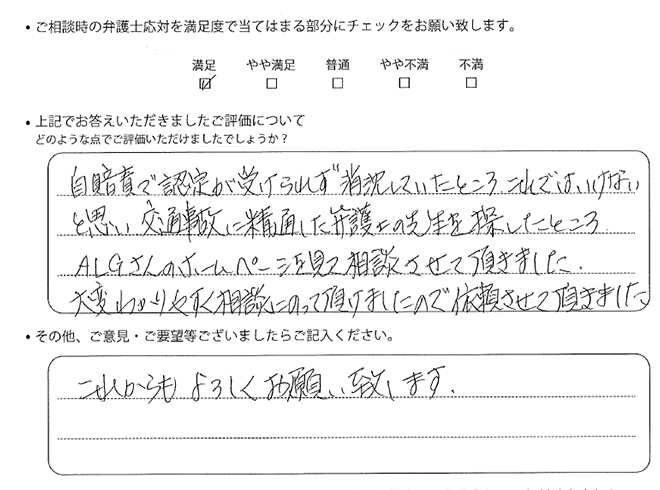 ・ご相談時の弁護士応対を満足度で当てはまる部分にチェックをお願い致します。
満足 やや満足 普通 やや不満 不満
☑ □ □ □ □
・上記でお答えいただきましたご評価について
どのような点でご評価いただけましたでしょうか？
自賠責で認定が受けられず消沈していたところ、これではいけない
と思い交通事故に精通した弁護士の先生を探したところ
ALGさんのホームページを見て相談させて頂きました.
大変わかりやすく相談にのって頂けましたので依頼させて頂きました
・その他、ご意見・ご要望等ございましたらご記入ください。
これからもよろしくお願い致します.